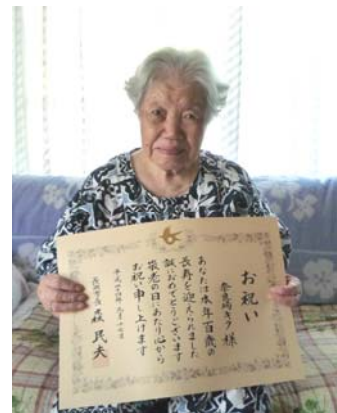 お祝い
様
あなたは本年百歳の
長寿を迎えられました
誠におめでとうございます
敬老の日にあたり心から
お祝い申し上げます
平成二十四年九月十七日
長岡市長 森民夫